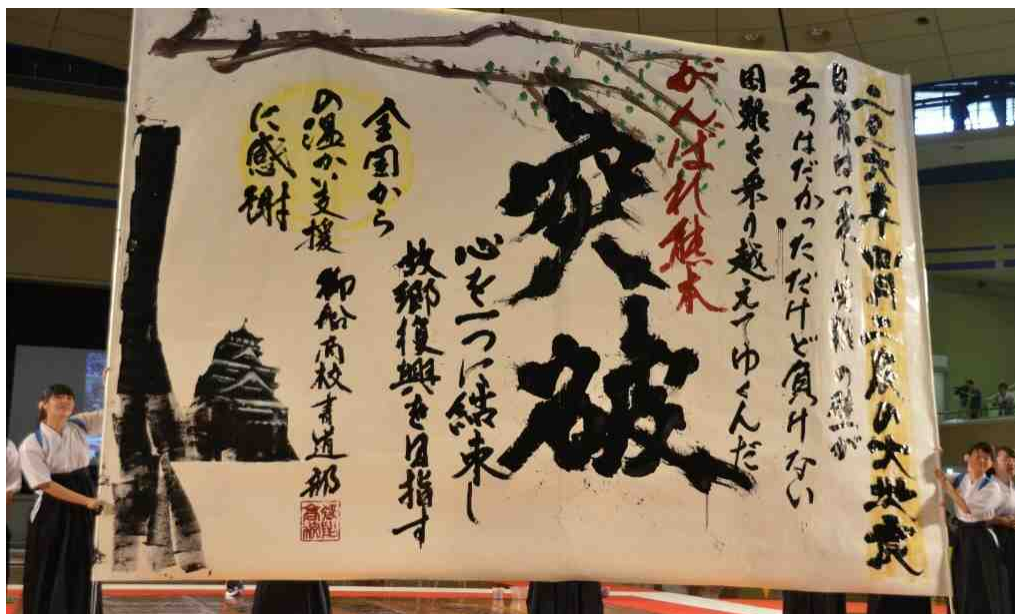 二〇一六年四月二度の大地震
日常は一変し の壁が
立ちはだかっただけど負けない
困難を乗り越えてゆくんだ
がんばれ熊本
突破
心を一つに結束し
故郷復興を目指す
全国から
の温かい支援
に感謝
御船高校書道部